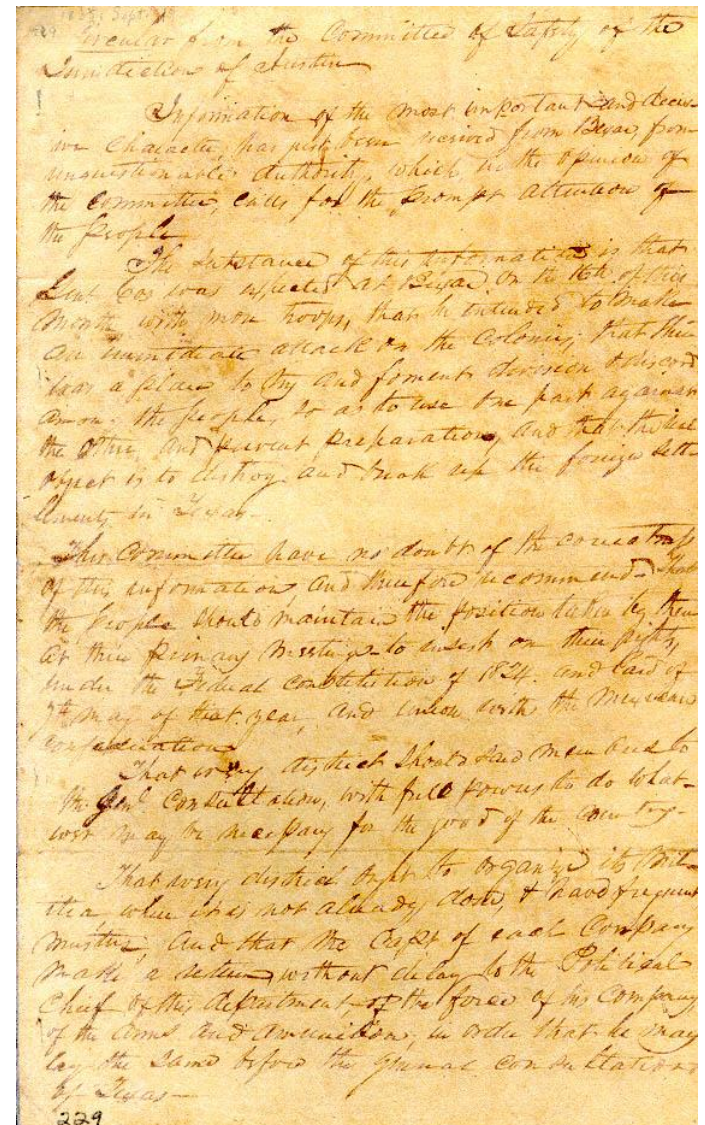 1835, Sept. 18
229 Circular from the Committee of Safety of the
Jurisdiction of Austin
Information of the most important and decis-
ive character has just been received from Bexar, from
unquestionable authority, which, in the opinion of
the committee, calls for the prompt attention of
the people
The substance of this information is that
Genl Cos was expected at Bexar on the 16th of this
month with more troops, that he intended to make
an immediate attack on the Colonies, that there
was a plan to try and foment division & discord
among the people, so as to use one part against
the other, and prevent preparation, and that the real
object is to destroy and break up the foreign sett-
lements in Texas—
This Committee have no doubt of the correctness
of this information, and therefore recommend— That
the people should maintain the position taken by them
at their primary meetings to insist on their rights,
under the Federal Constitution of 1824. and Law of
7th May of that year, and union with the Mexican
confederation
That every district should send members to
the Genl Consultation, with full powers to do what-
ever may be necessary for the good of the country—
That every district ought to organize its mil-
itia, where it is not already done, & have frequent
musters And that the Capt of each Company
make a return without delay to the Political
Chief of this department, of the force of his company,
of the arms and amunition, in order that he may
lay the same before the general consultation
of Texas—
229